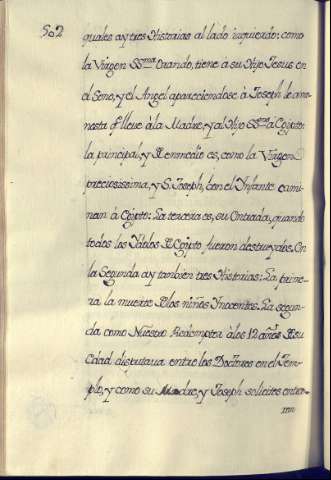 502
quales ay tres Historias al lado izquierdo: como
la Virgen SSma. Orando, tiene a su Hijo Jesus en
el Seno, y el Angel apareciendose à Joseph le amo-
nesta q̃ lleve à la Madre, y al Hijo SSmo. a Egypto:
la principal, y de enmedio es, como la Virgen
preciosissima, y S. Joseph, con el Infante cami-
nan à Egipto: La tercera es, su Entrada, quando
todos los Ydolos de Egipto fueron destruydos. En
la Segunda ay tambien tres Historias: La prime-
ra la muerte de los niños Inocentes. La segun-
da como Nuestro Redemptor à los 12 años de su
Edad disputava entre los Doctores en el Tem-
plo, y como su Madre, y Joseph solicitos entra-
ron